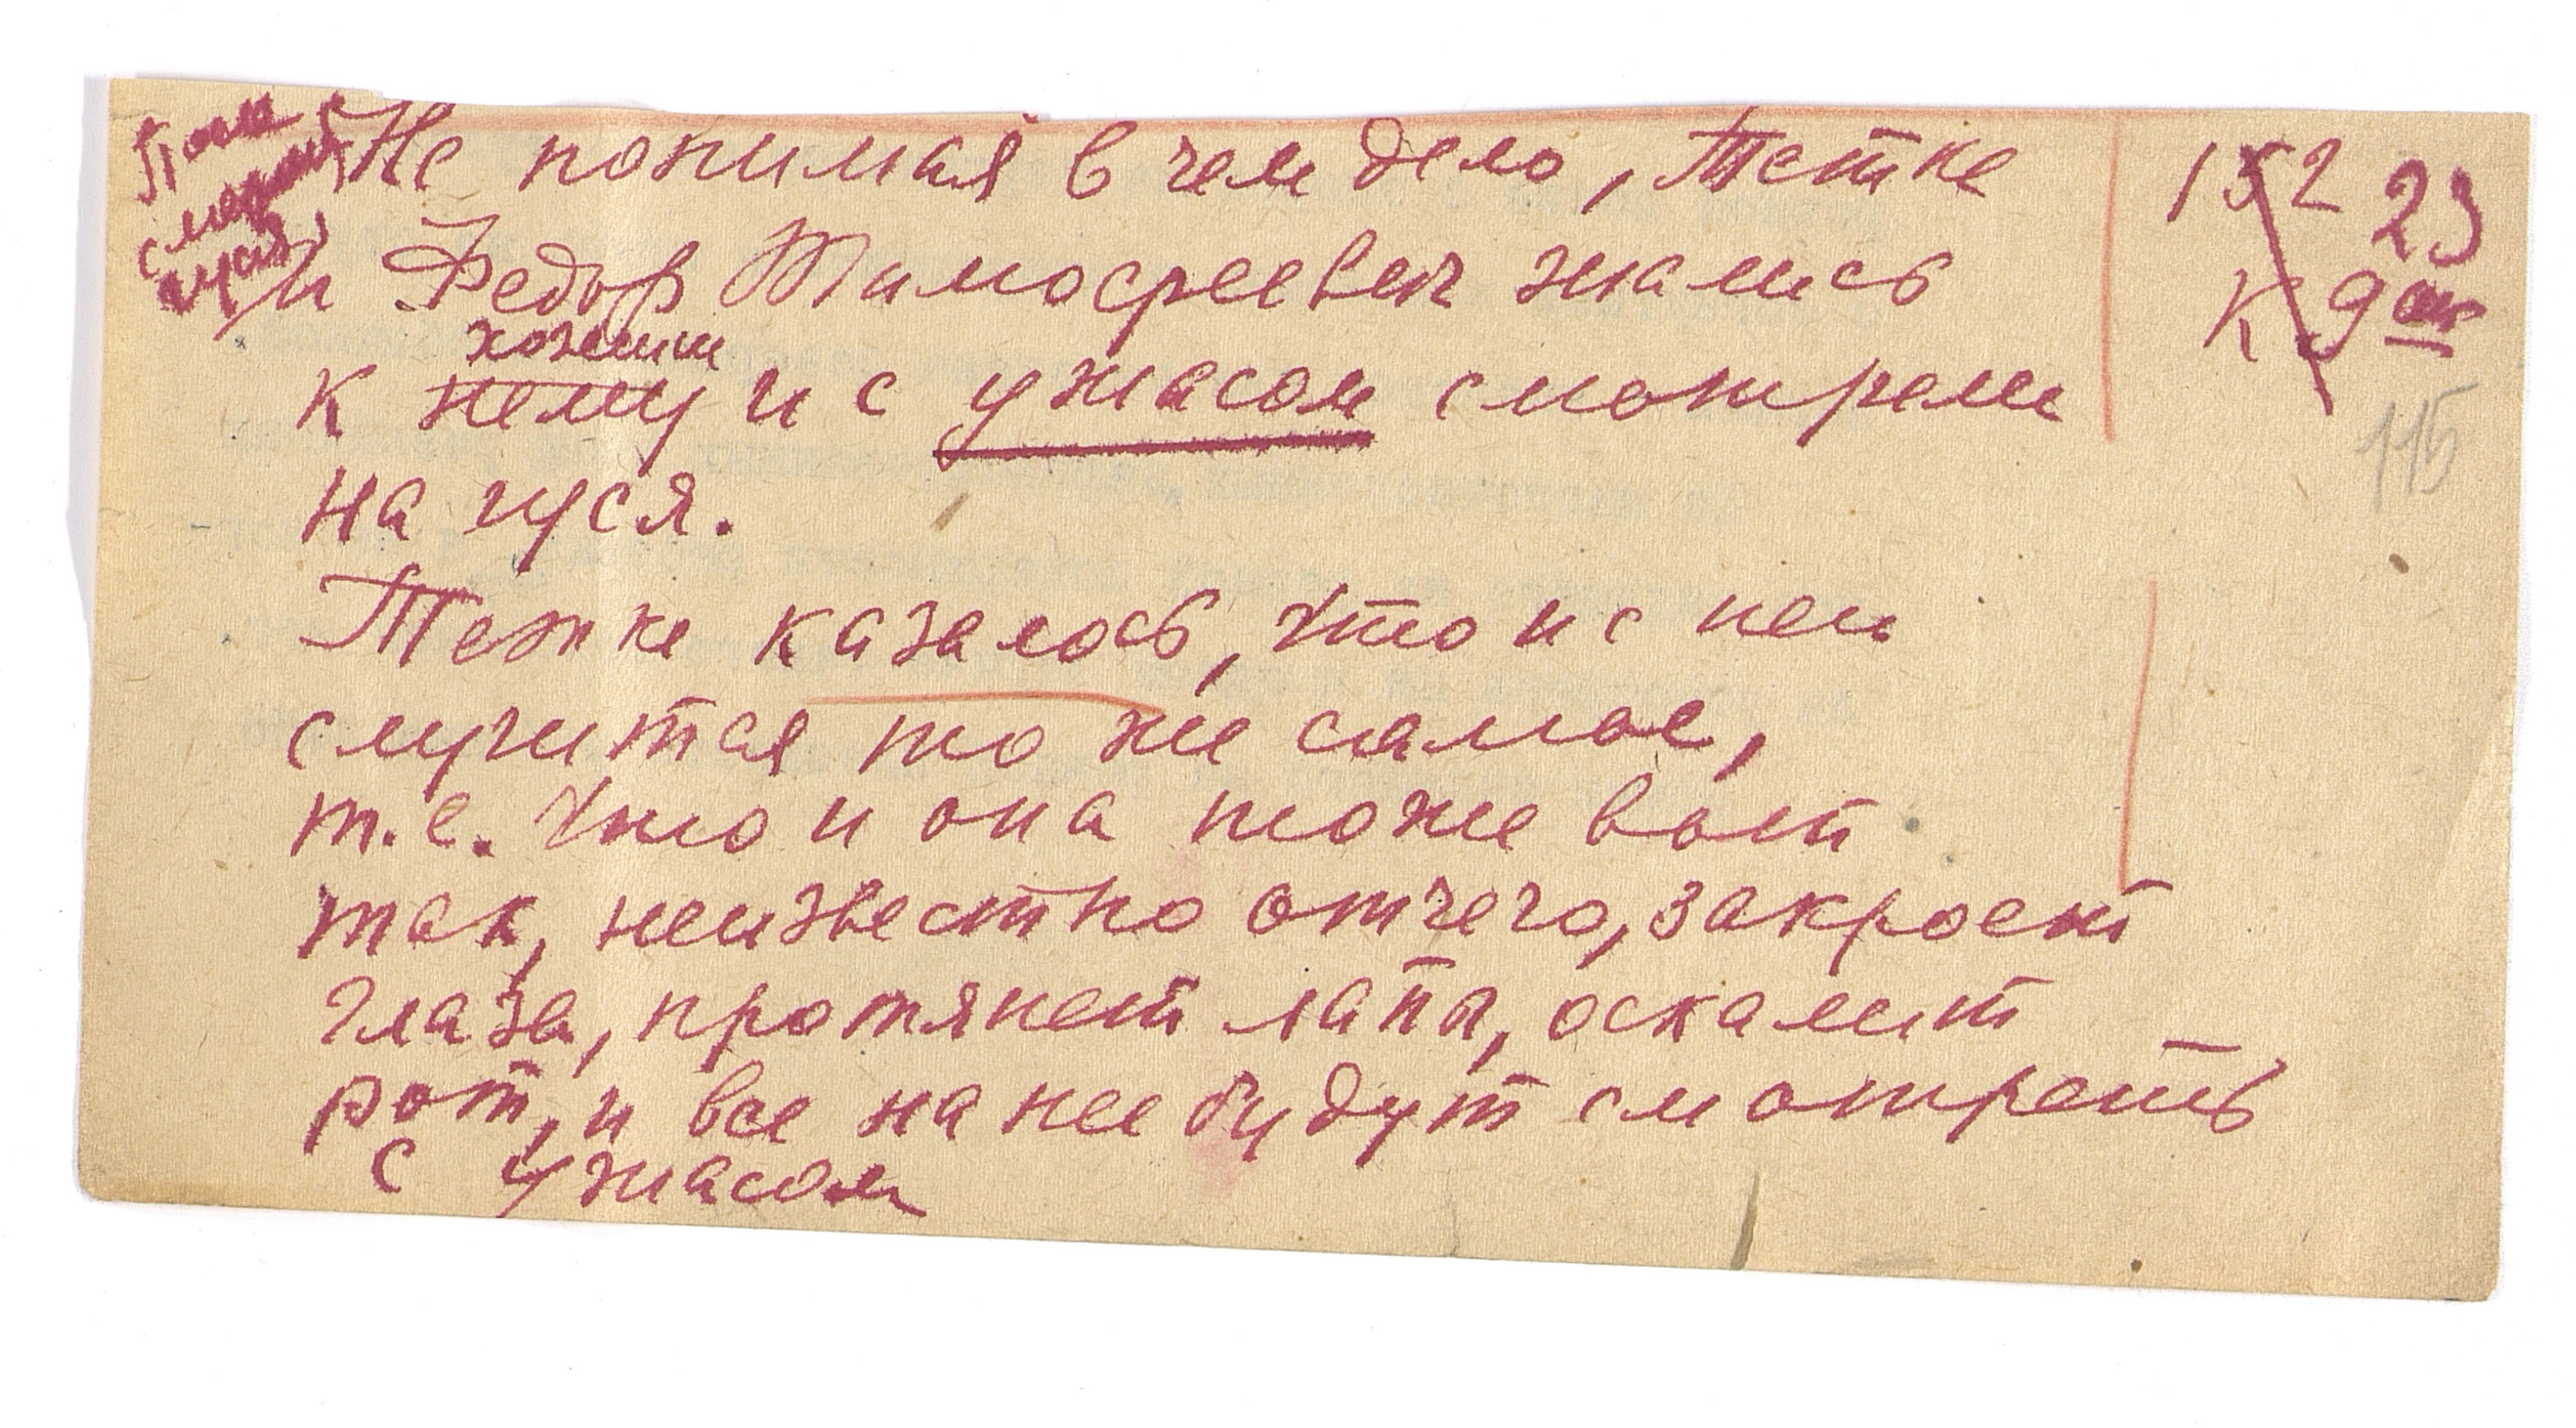 После
смерти
гуся,
Не понимая в чем дело, Тетке
и Федор Тимофеевич жались
хозяин
к нему и с ужасом смотрели
на гуся.
Тетке казалось, что и с ней
случится то же самое,
т.е. что и она тоже вот
так, неизвестно отчего, закроет
глаза, протянет лапы, оскалит
рот, и все на нее будут смотреть
с ужасом
152 23
К 9
115